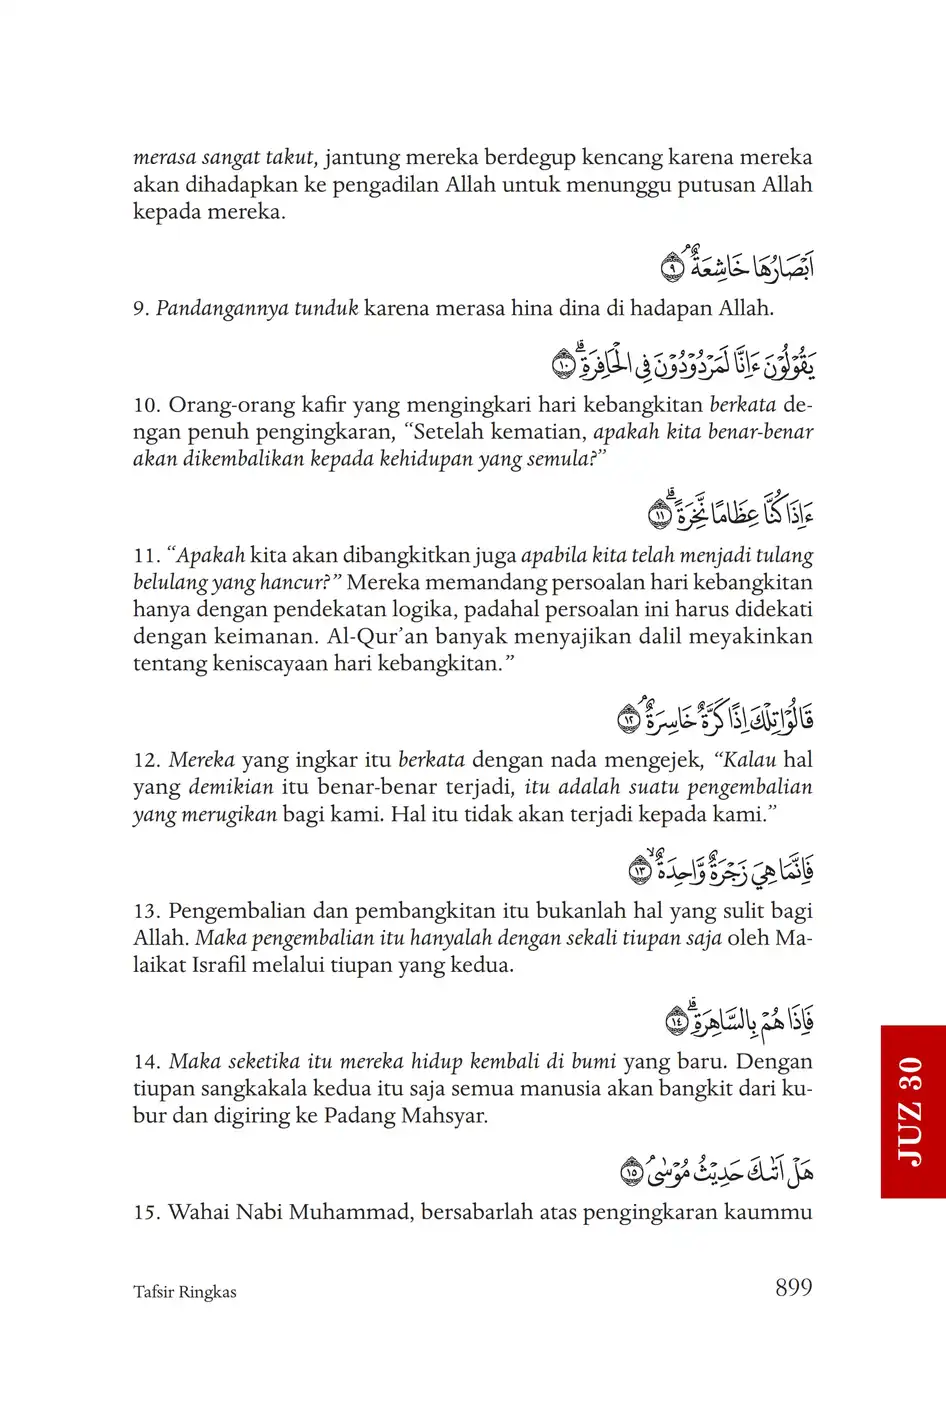 merasa sangat takut, jantung mereka berdegup kencang karena mereka
akan dihadapkan ke pengadilan Allah untuk menunggu putusan Allah
kepada mereka.
اَبْصَارُهَا خَاشِعَةٌ ۘ ٩
9. Pandangannya tunduk karena merasa hina dina di hadapan Allah.
يَقُوْلُوْنَ ءَاِنَّا لَمَرْدُوْدُوْنَ فِى الْحَافِرَةِۗ ١٠
10. Orang-orang kafir yang mengingkari hari kebangkitan berkata de-
ngan penuh pengingkaran, “Setelah kematian, apakah kita benar-benar
akan dikembalikan kepada kehidupan yang semula?”
ءَاِذَا كُنَّا عِظَامًا نَّخِرَةً ۗ ١١
11. “Apakah kita akan dibangkitkan juga apabila kita telah menjadi tulang
belulang yang hancur?” Mereka memandang persoalan hari kebangkitan
hanya dengan pendekatan logika, padahal persoalan ini harus didekati
dengan keimanan. Al-Qur’an banyak menyajikan dalil meyakinkan
tentang keniscayaan hari kebangkitan.”
قَالُوْا تِلْكَ اِذًا كَرَّةٌ خَاسِرَةٌ ۘ ١٢
12. Mereka yang ingkar itu berkata dengan nada mengejek, “Kalau hal
yang demikian itu benar-benar terjadi, itu adalah suatu pengembalian
yang merugikan bagi kami. Hal itu tidak akan terjadi kepada kami.”
فَاِنَّمَا هِيَ زَجْرَةٌ وَّاحِدَةٌ ۙ ١٣
13. Pengembalian dan pembangkitan itu bukanlah hal yang sulit bagi
Allah. Maka pengembalian itu hanyalah dengan sekali tiupan saja oleh Ma-
laikat Israfil melalui tiupan yang kedua.
فَاِذَا هُمْ بِالسَّاهِرَةِۗ ١٤
14. Maka seketika itu mereka hidup kembali di bumi yang baru. Dengan
tiupan sangkakala kedua itu saja semua manusia akan bangkit dari ku-
bur dan digiring ke Padang Mahsyar.
هَلْ اَتٰىكَ حَدِيْثُ مُوْسٰىۘ ١٥
15. Wahai Nabi Muhammad, bersabarlah atas pengingkaran kaummu
JUZ 30
Tafsir Ringkas
899